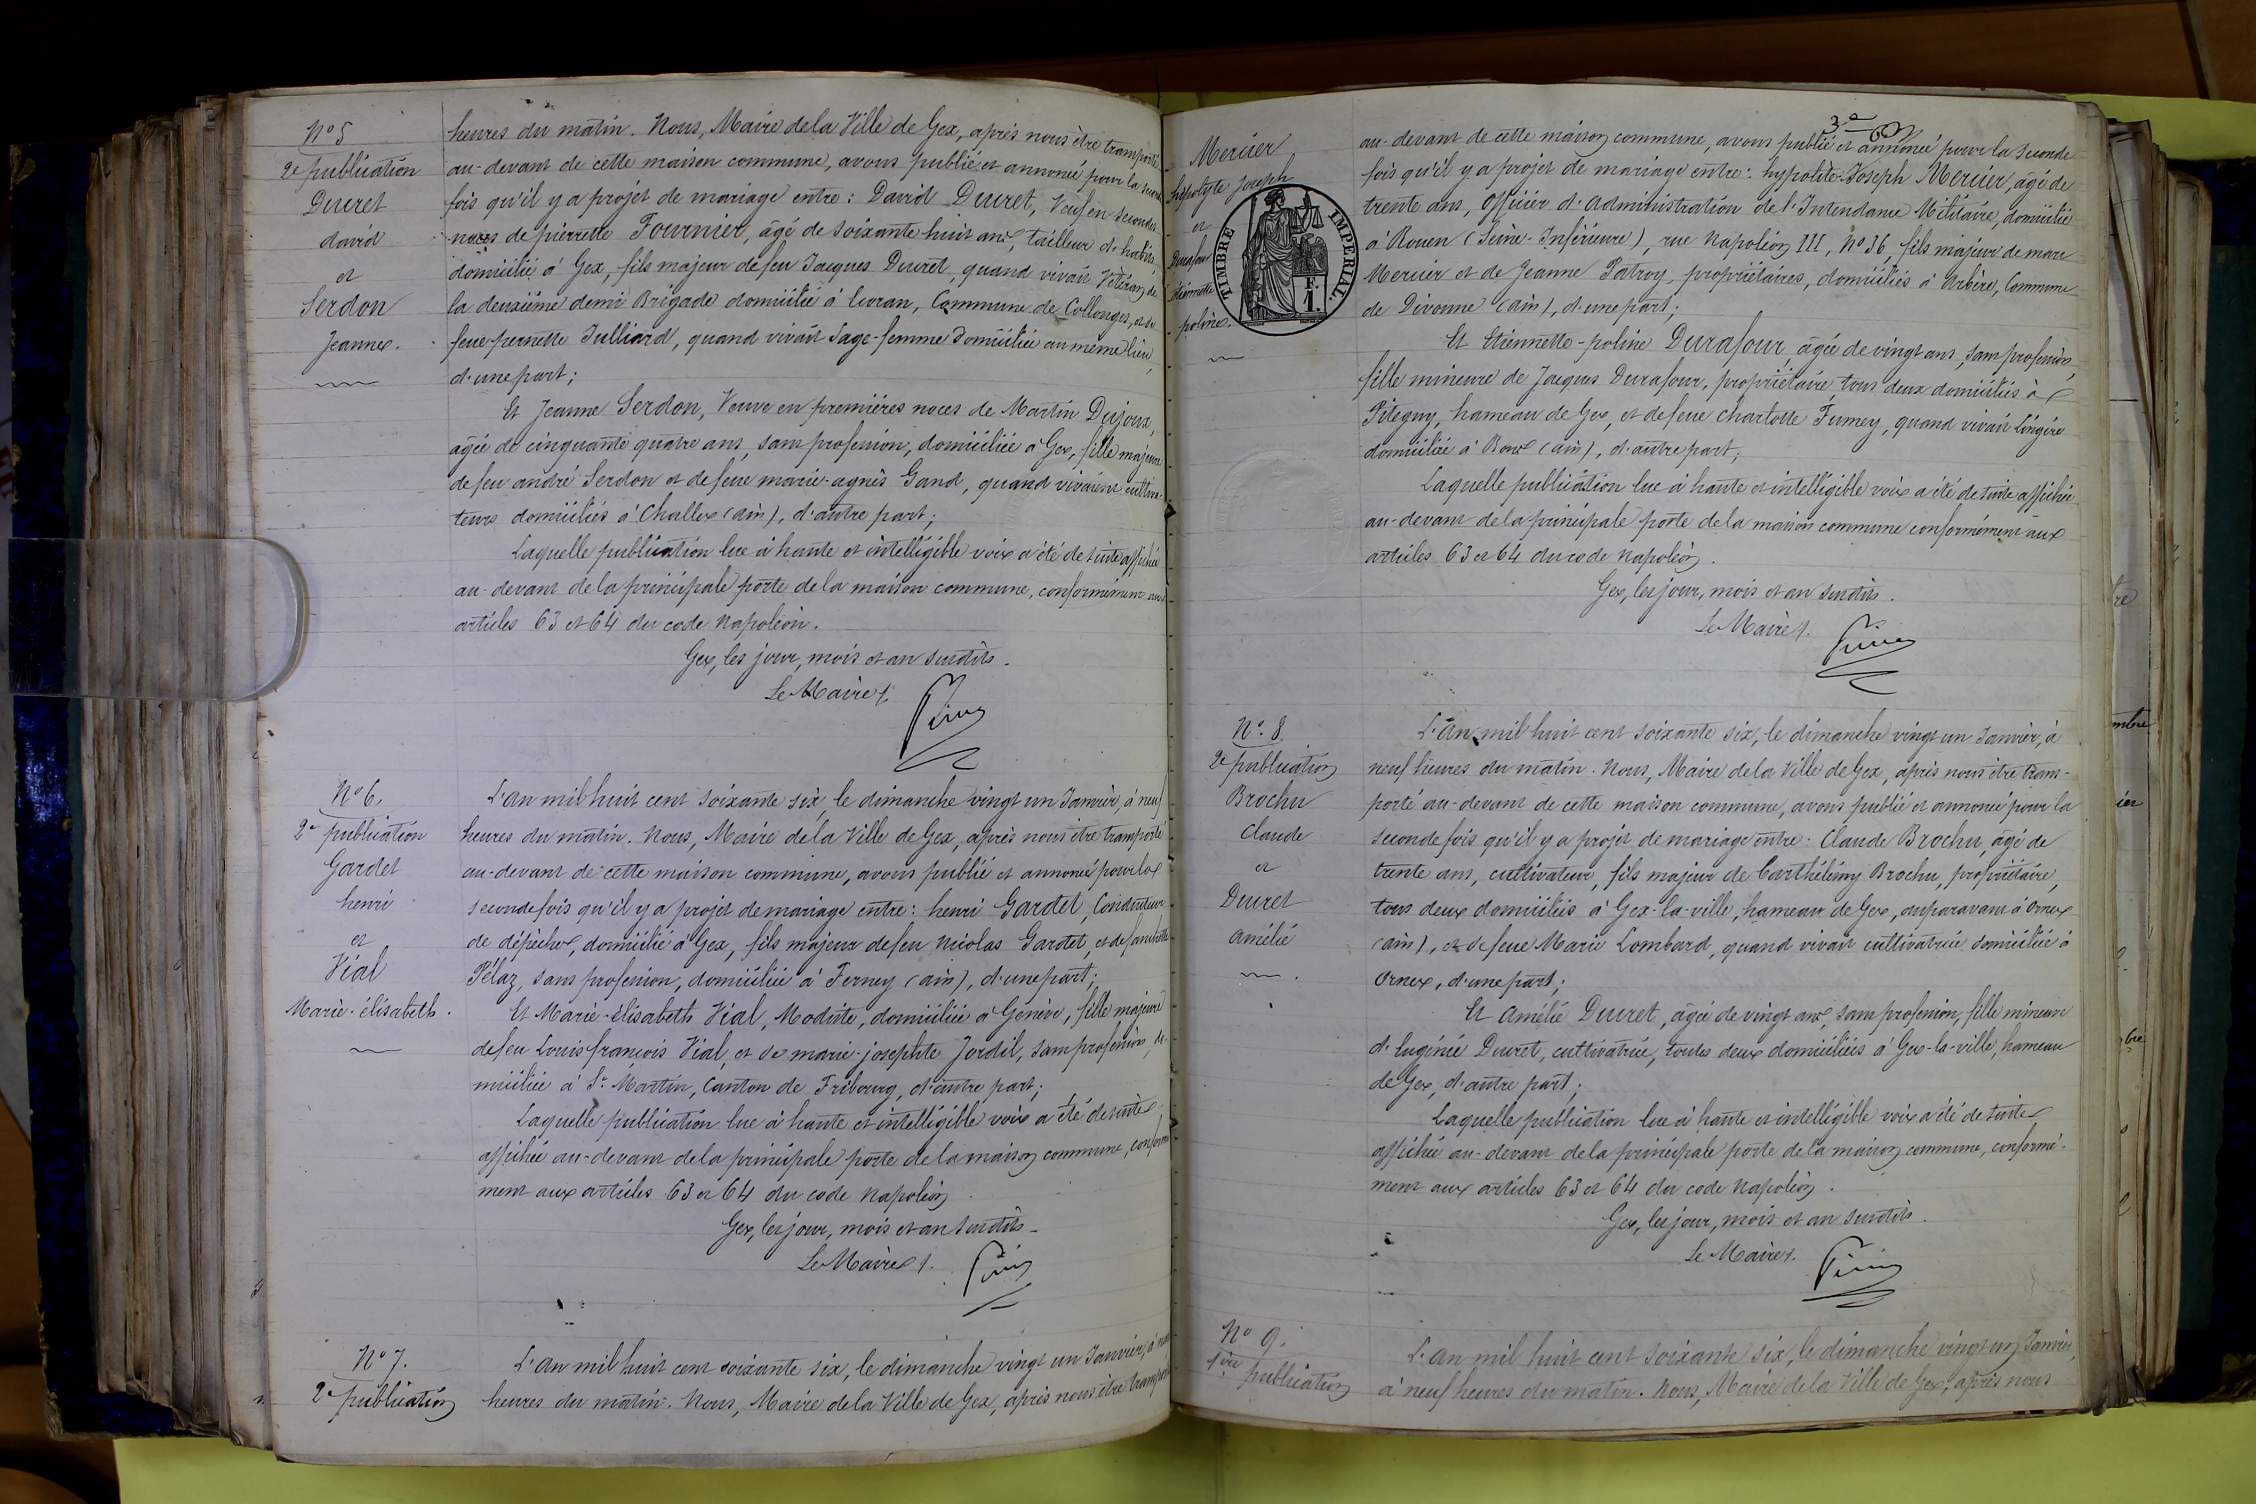 N° 5
2e publication
Ducret
david
et
Serdon
Jeanne.
heures du matin. Nous, Maire de la Ville de Gex, après nous être transporté
au-devant de cette maison commune, avons publié et annoncé pour la seconde
fois qu'il y a projet de mariage entre : David Ducret, Veuf en secondes
noces de pierrette Fournier, âgé de soixante huit ans, tailleur d'habits,
domicilié à Gex, fils majeur de feu Jacques Ducret, quand vivait Vétéran de
la deuxième demi Brigade domicilié à Ecoran, Commune de Collonges, et de
feue pernette Julliard, quand vivait Sage-femme domiciliée au même lieu,
d'une part ;
Et Jeanne Serdon, Veuve en premières noces de Martin Dujoux,
âgée de cinquante quatre ans, sans profession, domiciliée à Gex, fille majeure
de feu andré Serdon et de feue marie-agnès Gand, quand vivaient cultiva-
teurs domiciliés à Challex (ain), d'autre part ;
Laquelle publication lue à haute et intelligible voix a été de suite affichée
au-devant de la principale porte de la maison commune, conformément aux
articles 63 et 64 du code Napoléon.
Gex, les jour, mois et an susdits.
Le Maire /.
N° 6.
2e publication
Gardet
henri
et
Vial
Marie-élisabeth.
L'an mil huit cent soixante six, le dimanche vingt un Janvier, à neuf
heures du matin. Nous, Maire de la Ville de Gex, après nous être transporté
au-devant de cette maison commune, avons publié et annoncé pour la
seconde fois qu'il y a projet de mariage entre : henri Gardet, Conducteur
de dépêches, domicilié à Gex, fils majeur de feu Nicolas Gardet, et de
Pélaz, sans profession, domiciliée à Ferney (ain), d'une part ;
Et Marie-élisabeth Vial, Modiste, domiciliée à Genève, fille majeure
de feu Louis françois Vial, et de marie-josephte Jordil, sans profession, do-
miciliée à St Martin, Canton de Fribourg, d'autre part ;
Laquelle publication lue à haute et intelligible voix a été de suite
affichée au-devant de la principale porte de la maison commune, conformé-
ment aux articles 63 et 64 du code Napoléon.
Gex, les jour, mois et an susdits.
Le Maire /.
N° 7.
2e publication
L'an mil huit cent soixante six, le dimanche vingt un Janvier, à neuf
heures du matin. Nous, Maire de la Ville de Gex, après nous être transporté
Mercier
hippolyte Joseph
et
Durafour
étiennette
poline.
TIMBRE IMPÉRIAL.
F.
1.
3e
au-devant de cette maison commune, avons publié et annoncé pour la seconde
fois qu'il y a projet de mariage entre : hypolite-Joseph Mercier, âgé de
trente ans, officier d'administration de l'Intendance Militaire, domicilié
à Rouen (Seine-Inférieure), rue Napoléon III, N° 36, fils majeur de marc
Mercier et de Jeanne Patroy, propriétaires, domiciliés à Arbère, Commune
de Divonne (ain), d'une part ;
Et Etiennette-poline Durafour, âgée de vingt ans, sans profession,
fille mineure de Jacques Durafour, propriétaire, tous deux domiciliés à
Pitegny, hameau de Gex, et de feue charlotte Fumey, quand vivait lingère
domiciliée à (ain), d'autre part ;
Laquelle publication lue à haute et intelligible voix a été de suite affichée
au-devant de la principale porte de la maison commune conformément aux
articles 63 et 64 du code Napoléon.
Gex, les jour, mois et an susdits.
Le Maire /.
N° 8.
2e publication
Brochu
Claude
et
Ducret
Amélie
L'An mil huit cent soixante six, le dimanche vingt un Janvier, à
neuf heures du matin. Nous, Maire de la Ville de Gex, après nous être trans-
porté au-devant de cette maison commune, avons publié et annoncé pour la
seconde fois qu'il y a projet de mariage entre : Claude Brochu, âgé de
trente ans, cultivateur, fils majeur de Barthélémy Brochu, propriétaire,
tous deux domiciliés à Gex-la-ville, hameau de Gex, auparavant à Ornex
(ain), et de feue Marie Lombard, quand vivait cultivatrice domiciliée à
Ornex, d'une part ;
Et Amélie Ducret, âgée de vingt ans, sans profession, fille mineure
d'Eugénie Ducret, cultivatrice, toutes deux domiciliées à Gex-la-ville, hameau
de Gex, d'autre part ;
Laquelle publication lue à haute et intelligible voix a été de suite
affichée au-devant de la principale porte de la maison commune, conformé-
ment aux articles 63 et 64 du code Napoléon.
Gex, les jour, mois et an susdits.
Le Maire /.
N° 9.
1ère publication
L'an mil huit cent soixante six, le dimanche vingt un Janvier,
à neuf heures du matin. Nous, Maire de la Ville de Gex, après nous